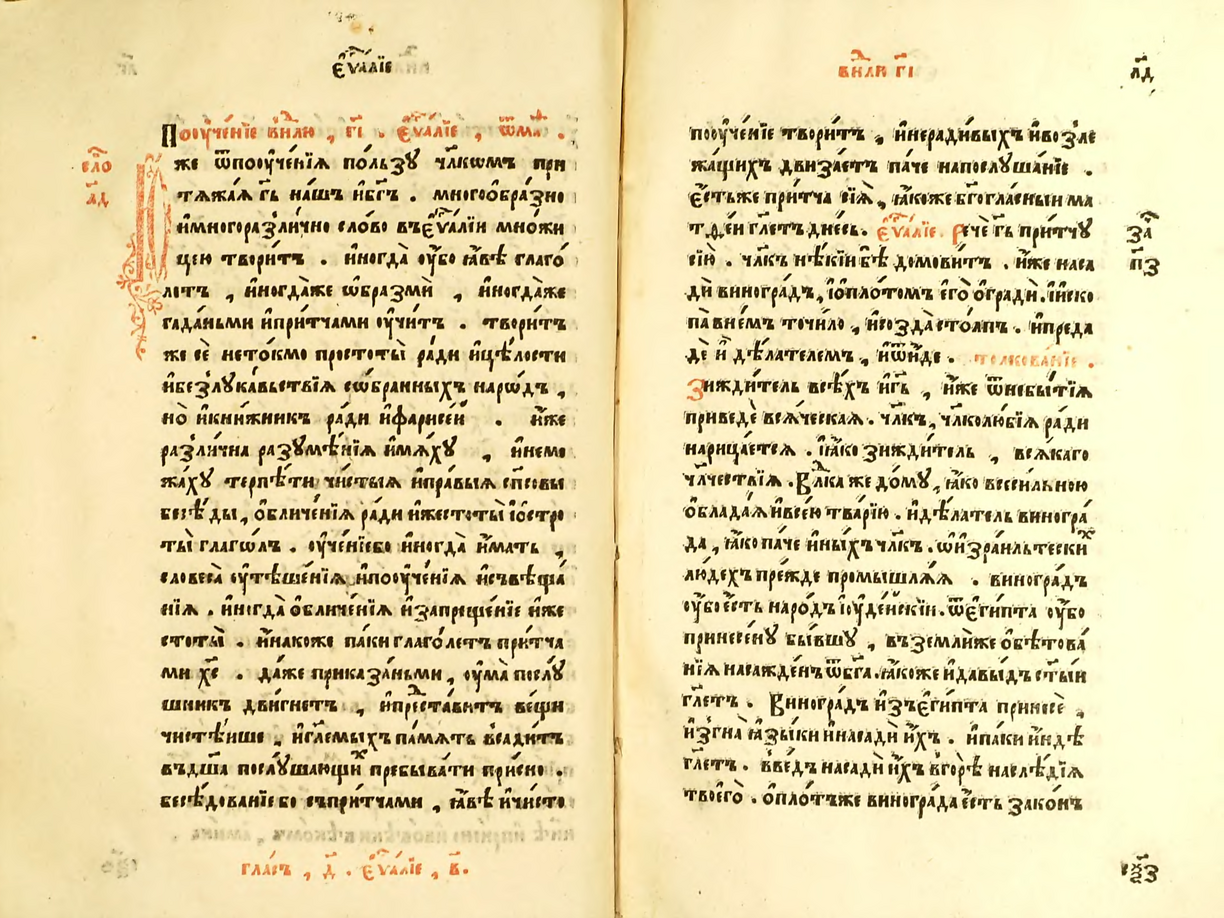 є҆ѵⷢ҇алїе
Поѹче́нїе внⷣлю , гі҃ . є҆ѵⷢ҇а́лїе , ѿмⷴ҇а .
сло
л҃д
И҆же ѿпоѹче́нїѧ по́льзꙋ чл҃кѡмъ при
тѧжа́ѧ гь҃ на́шъ и҆бг҃ъ . многоѻбра́зно
и҆многоразли́чно сло́во въє҆ѵⷢ҇а́лїи мно́жи
цею твори́тъ . и҆ногда̀ ѹ҆́бо ꙗ҆́вѣ глаго́
летъ , и҆ногда́же ѡ҆́бразмѝ , и҆ногда́же
гада́ньми и҆при́тчами ѹ҆чи́тъ . твори́тъ
же сѐ нето́кмо простоты̀ ра́ди и҆цѣ́лости
и҆безлꙋка́вьствїѧ со́бранныхъ наро́дъ ,
но̀ и҆кни́жникъ ра́ди и҆фарисе́и . и҆̀же
разли́чна разꙋмѣ́нїѧ и҆мѧ́хꙋ , и҆немо
жа́хꙋ терпѣ́ти чи́стыѧ и҆пра́выѧ сп҃совы
бесѣ́ды , ѻбличе́нїѧ ра́ди и҆жестоты̀ і҆ѻстро
ты̀ глаго́лъ . ѹ҆че́нїебо и҆ногда̀ и҆́мать ,
словеса̀ ѹ҆тѣше́нїѧ и҆поѹче́нїѧ и҆съвѣща́
нїѧ . и҆ногда̀ ѻбличе́нїѧ и҆запреще́нїе и҆же
стоты̀ . и҆на́коже па́ки глаго́летъ при́тча
ми хс҃ . да́же приказа́ньми , ѹ҆ма̀ послꙋ́
шникъ дви́гнетъ , и҆преⷣста́витъ ве́щи
чистѣ́ише , и҆гл҃емыхъ па́мѧть всади́тъ
въдш҃а послꙋ́шающиⷯ пребыва́ти при́сно .
бесѣ́дованїе бо съпри́тчами , ꙗ҆́вѣ и҆чи́сто
гла́съ , д҃ . є҆ѵⷢ҇а́лїе , в҃ .
внⷣлѧ гі҃
л҃д
поѹче́нїе твори́тъ , и҆неради́выхъ и҆возле
жа́щихъ двиза́етъ па́че напослꙋша́нїе .
є҆́стьже при́тча сїѧ̀ , ꙗ҆́коже бг҃огла́сныи ма
тѳ́еи гл҃етъ дне́сь . є҆ѵⷢ҇а́лїе . Речѐ гь҃ при́тчꙋ
сїю̀ . чл҃къ нѣ́кїи бѣ̀ домови́тъ . и҆́же наса
дѝ виногра́дъ , і҆ѻпло́томъ е҆го̀ ѻгради̂ . і҆иско
па̀ вне́мъ точи́ло , и҆созда̀ сто́лпъ . и҆преда
дѐ и҆̀ дѣ́лателемъ , и҆ѿи́де . толкова́нїе .
за
п҃з
Зижди́тель всѣ́хъ и҆гь҃ , и҆́же ѿнебытїѧ̀
приведѐ всѧ́ческаѧ . чл҃къ , чл҃колю́бїѧ ра́ди
нарица́етсѧ . і҆ꙗ҆́ко зижди́тель , всѧ́каго
чл҃чествїѧ . Влⷣка же до́мꙋ , ꙗ҆́ко всеси́льною
ѻблада́ѧ и҆все́ю тва́рїю . и҆дѣ́латель виногра́
да , ꙗ҆́ко па́че и҆ны́хъ чл҃къ . ѡ҆и҆зра́ильтескиⷯ
лю́дехъ пре́жде промышлѧ́ѧ . виногра́дъ
ѹ҆́бо е҆́сть наро́дъ і҆ѹде́искїи . ѿє҆ги́пта ѹ҆́бо
принесе́нꙋ бы́вшꙋ , въземлѝже ѻбѣтова́
нїѧ насажде́нъ ѿбг҃а . ꙗ҆́коже и҆дав́ыдъ ст҃ы́и
гл҃етъ . Виногра́дъ и҆зъє҆ги́пта принесѐ ,
и҆згна̀ ꙗ҆зы́ки и҆насадѝ и҆́хъ . и҆па́ки и҆́ндѣ
гл҃етъ . вве́дъ насадѝ и҆́хъ вго́рѣ наслѣ́дїѧ
твоего̀ . ѻпло́тъже виногра́да е҆́сть зако́нъ
сѯ҃з